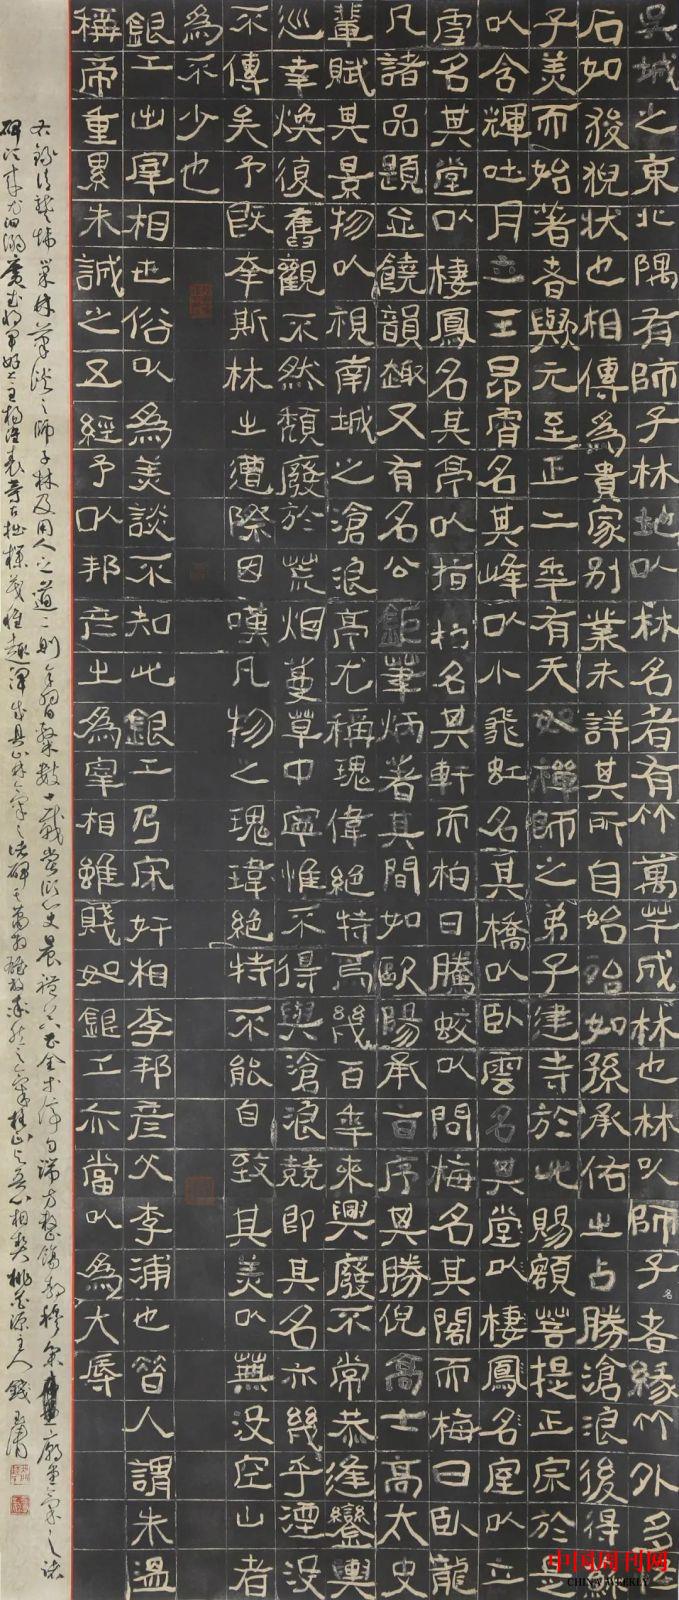 吳城之東北隅有師子林地以林名者有竹萬竿成林也林以師子者緣竹外多
石如狻猊狀也相傳為貴家別業未詳其所自始始如孫承佑之占勝滄浪後得
子美而始著者歟元至正二年有天如禪師之弟子建寺於此賜額菩提正宗於是
以含輝吐月立玉昂霄名其峰以小飛虹名其橋以臥雲名其堂以棲鳳名室以立
雪名其堂以棲鳳名其亭以指柏名其軒而柏曰騰蛟以問梅名其閣而梅曰臥龍
凡諸品題並饒韻趣又有名公鉅筆炳著其間如歐陽承旨序其勝倪高士高太史
輩賦其景物以視南城之滄浪亭尤稱瑰偉絕特焉幾百年來興廢不常恭逢鑾輿
巡幸煥復舊觀不然頹廢於荒烟蔓草中寧惟不得與滄浪競即其名亦幾乎湮沒
不傳矣予既幸斯林之遭際因嘆凡物之瑰瑋絕特不能自致其美以蕪沒空山者
為不少也
銀工出宰相世俗以為美談不知此銀工乃宋奸相李邦彥父李浦也昔人謂朱溫
稱帝重累朱誠之五經予以邦彥之為宰相雖賤如銀工亦當以為大辱
右錄清龔煒巢林筆談之師子林及用人之道二則
桃花源主人錢玉清
中国周刊网
CHINA WEEKLY